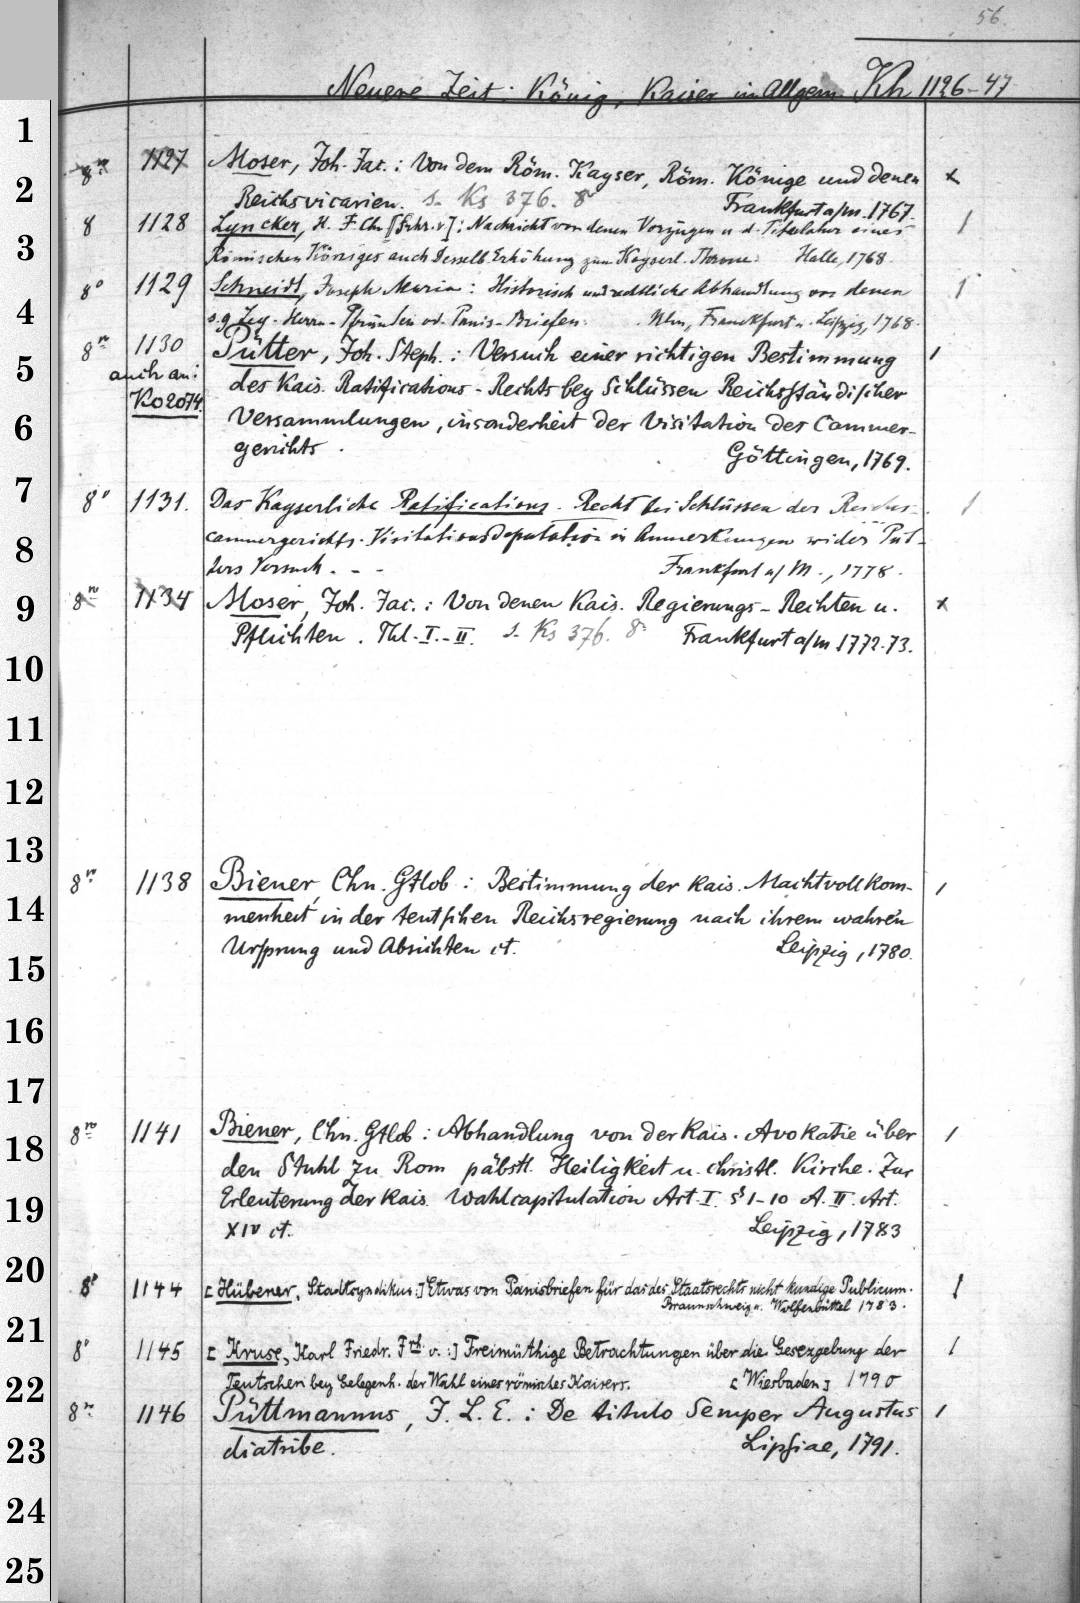 56.
Neuere Zeit: König, Kaiser im Allgem. Kh 1126-47
8° 1127 Moser, Joh. Jac.: Von dem Röm. Kayser, Röm. Könige und denen x
Reichsvicarien. s. Ks 376. 8° Frankfurt a/m. 1767.
8 1128 Lyncker, H. F. Chn [Frhr. v]: Nachricht von denen Vorzügen u d. Titulatur eines 1
Römischen Königes auch desselb. Erhöhung zum Kayserl. Throne. Halle, 1768.
8° 1129 Schneidt, Joseph Maria: Historisch und rechtliche Abhandlung von denen 1
s.g. Ley-Herrn-Pfründen od. Panis-Briefen. Ulm, Franckfurt u. Leipzig, 1768.
8° 1130 Pütter, Joh. Steph.: Versuch einer richtigen Bestimmung 1
auch an: des Kais. Ratifications-Rechts bey Schlüssen Reichsständischer
Ko 2074. Versammlungen, insonderheit der Visitation des Cammer-
gerichts. Göttingen, 1769.
8° 1131. Das Kayserliche Ratifications-Recht bei Schlüssen der Reichs- 1
cammergerichts-Visitationsdeputation in Anmerkungen wider Püt-
ters Versuch - - Frankfurt a/M., 1778.
8° 1134 Moser, Joh. Jac.: Von denen Kais. Regierungs-Rechten u. x
Pflichten. Thl. I.-II. s. Ks 376. 8° Frankfurt a/m 1772-73.
8° 1138 Biener, Chn. Gtlob: Bestimmung der Kais. Machtvollkom- 1
menheit in der teutschen Reichsregierung nach ihrem wahren
Ursprung und Absichten ct. Leipzig, 1780.
8° 1141 Biener, Chn. Gtlob: Abhandlung von der Kais. Avokatie über 1
den Stuhl zu Rom päbstl. Heiligkeit u. christl. Kirche. Zur
Erleuterung der Kais. Wahlcapitulation Art. I. § 1-10 A. II. Art.
XIV ct. Leipzig, 1783
8° 1144 [Hübener, Stadtsyndikus:] Etwas von Panisbriefen für das des Staatsrechts nicht kundige Publicum. 1
Braunschweig u. Wolfenbüttel 1783.
8° 1145 [Kruse, Karl Friedr. Frh. v.:] Freimüthige Betrachtungen über die Gesezgebung der 1
Teutschen bey Gelegenh. der Wahl eines römisches Kaisers. [Wiesbaden] 1790
8° 1146 Püttmannus, J. L. E.: De titulo Semper Augustus 1
diatribe. Lipsiae, 1791.
1
2
3
4
5
6
7
8
9
10
11
12
13
14
15
16
17
18
19
20
21
22
23
24
25